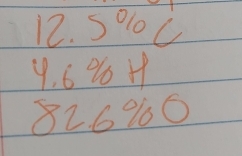 12.5% C
4.6% H
82.6% O